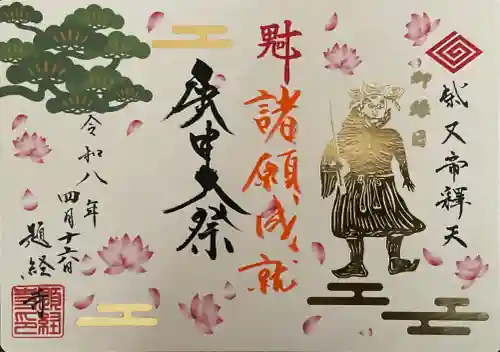 柴又帝釋天
御縁日
魁 諸願成就
庚申大祭
令和八年
四月十六日
題経寺